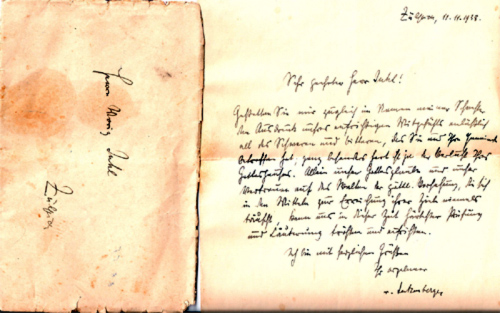 Herrn Moriz Juhl
Zülpich
Zülpich, 11.11.1938.
Sehr geehrter Herr Juhl!
Gestatten Sie mir zugleich im Namen meiner Schwester
den Ausdruck unseres aufrichtigen Mitgefühls anläßlich
all des Schweren und Bitteren, das Sie und Ihre Gemeinde
betroffen hat, ganz besonders hart ist ja der Verlust Ihres
Gotteshauses. Allein unser Gottesglaube und unser
Vertrauen auf das Walten der göttl. Vorsehung, die sich
in den Mitteln zur Erreichung ihrer Ziele niemals
täuscht, kann uns in dieser Zeit härtester Prüfung
und Läuterung trösten und aufrichten.
Ich bin mit herzlichen Grüßen
Ihr ergebener